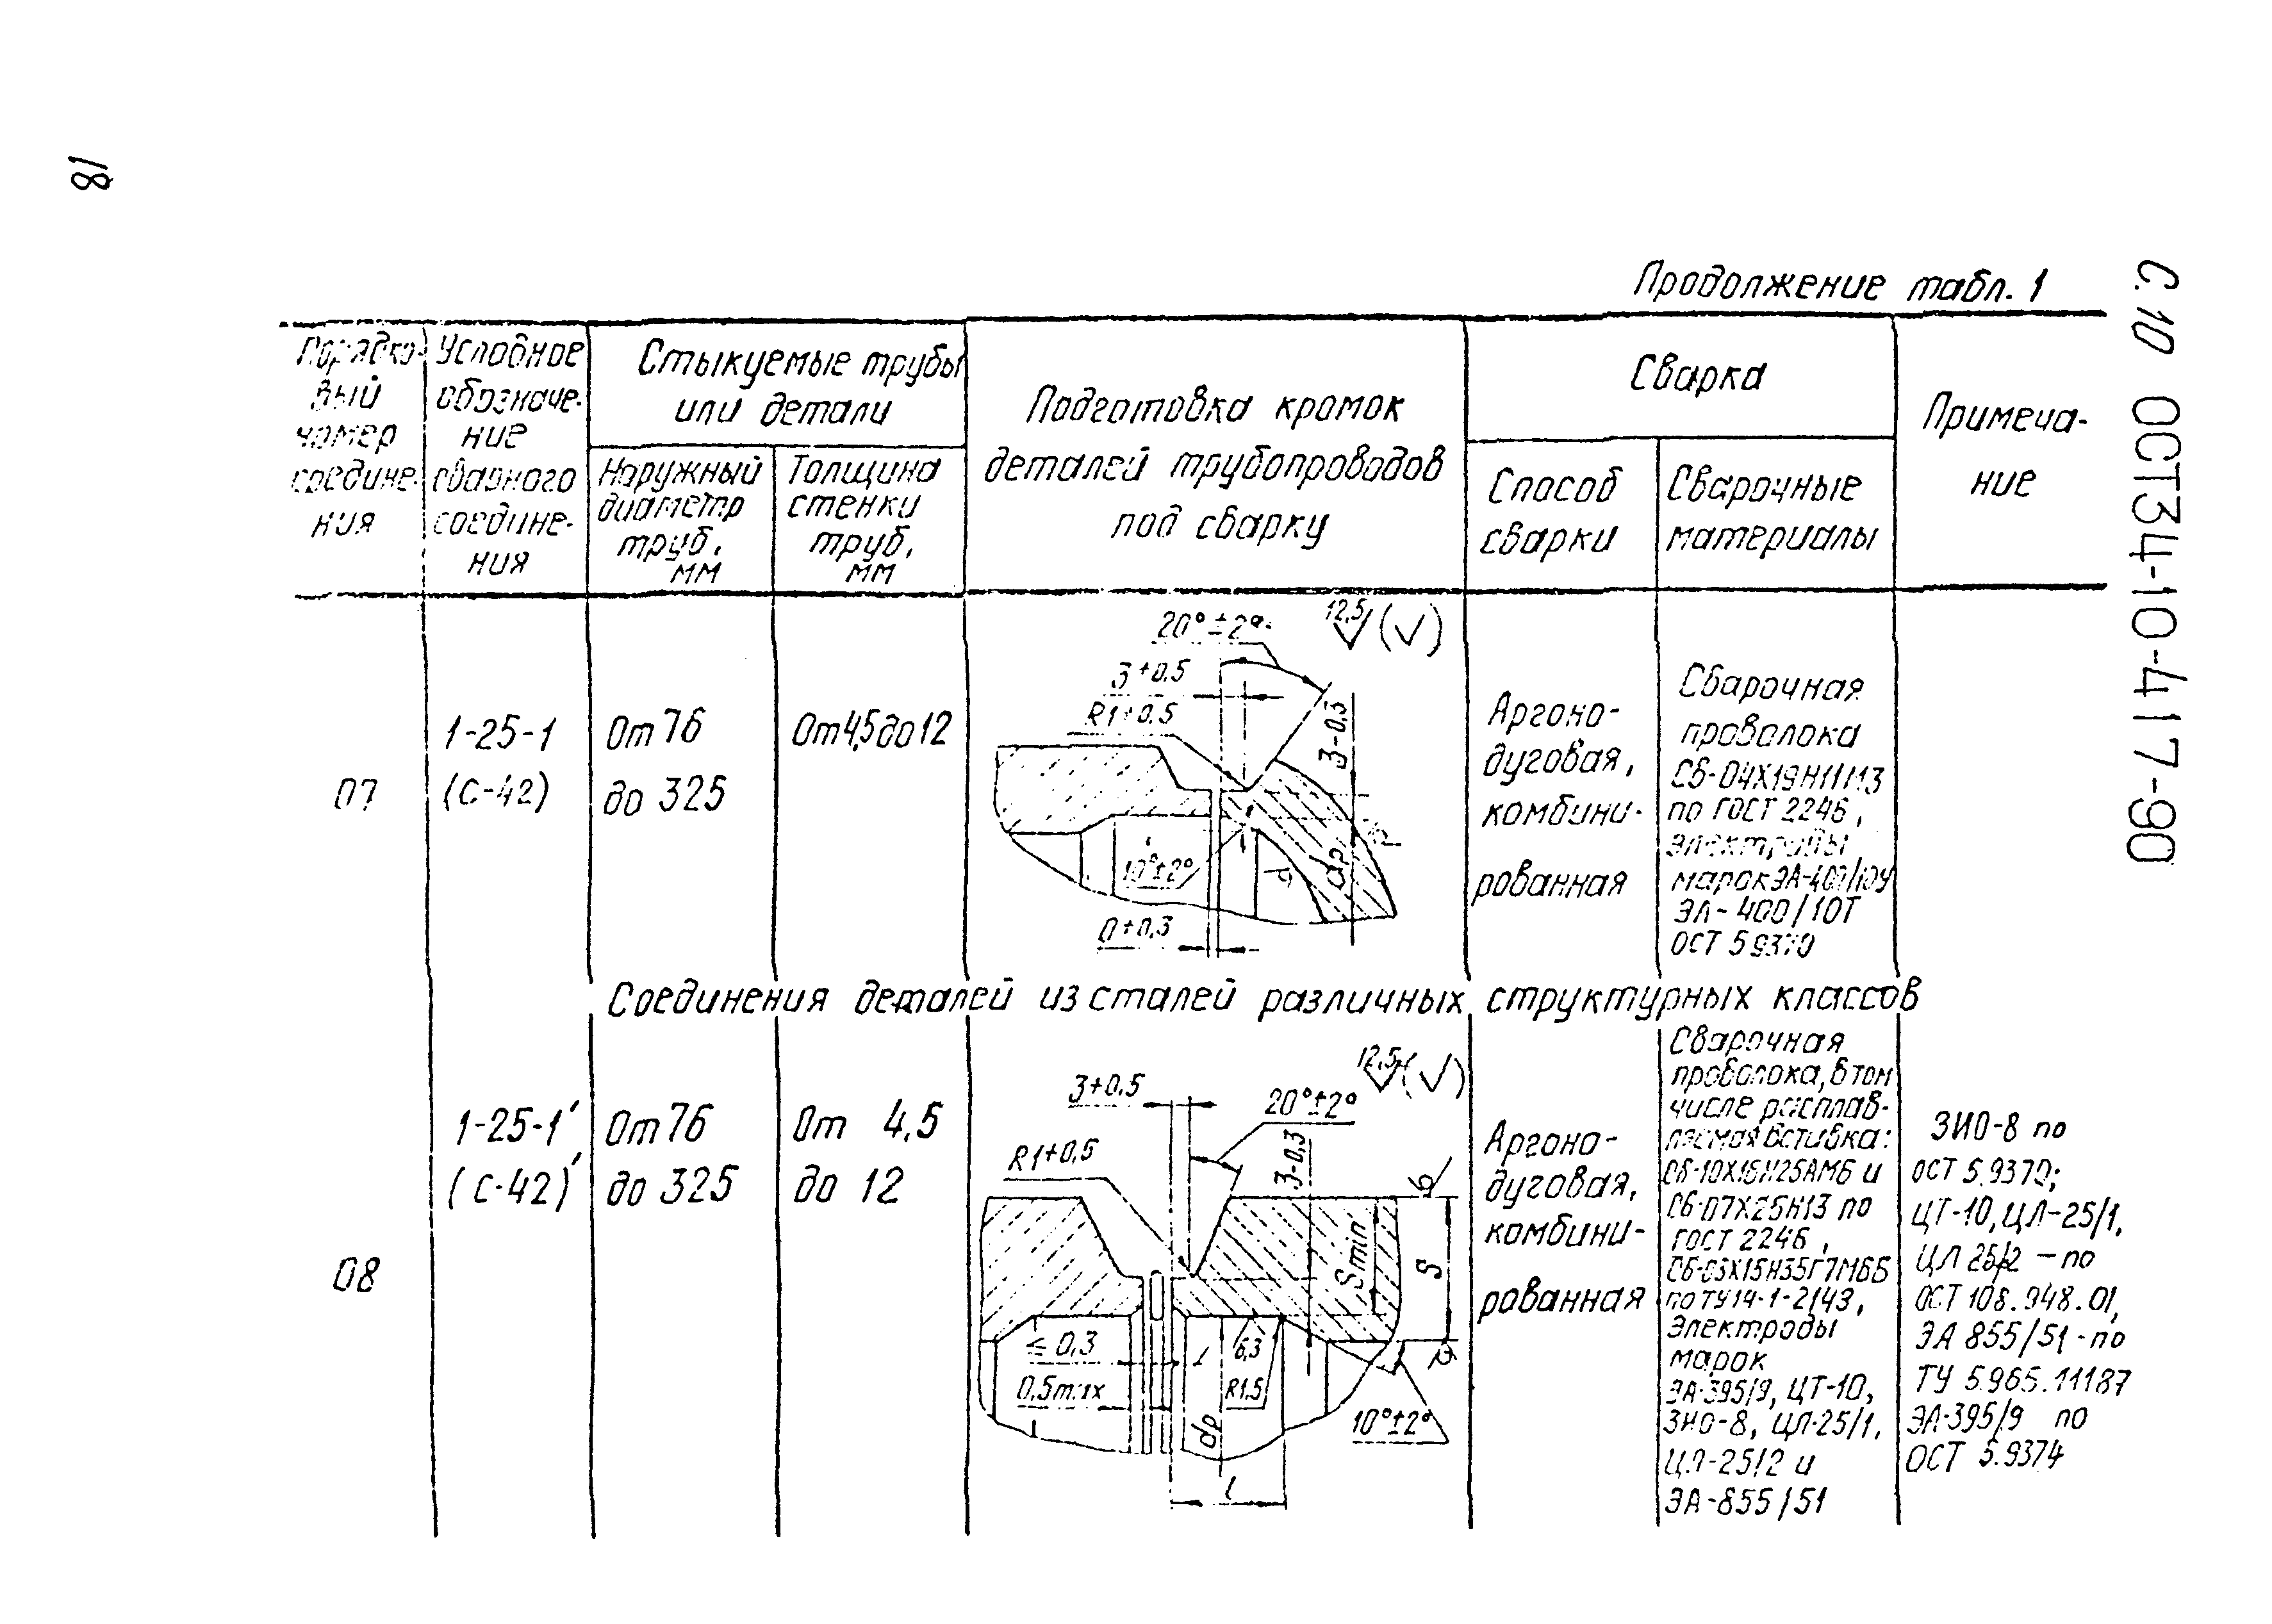 81
С. 10 ОСТ34-10-417-90
Продолжение табл. 1
Порядко-
вый
номер
соедине-
ния
Условное
обозначе-
ние
сварного
соедине-
ния
Стыкуемые трубы
или детали
Наружный
диаметр
труб,
мм
Толщина
стенки
труб,
мм
Подготовка кромок
деталей трубопроводов
под сварку
Сварка
Способ
сварки
Сварочные
материалы
Примеча-
ние
07
1-25-1
(С-42)
От 76
до 325
От 4,5 до 12
20°±2°
12,5
3+0.5
R1+0.5
3-0,3
10°±2°
dр
0+0,3
Аргоно-
дуговая,
комбини-
рованная
Сварочная
проволока
Св-04Х19Н11М3
по ГОСТ 2246,
электроды
марок ЭА-400/10У
ЭА-400/10Т
ОСТ 5.9370
Соединения деталей из сталей различных структурных классов
08
1-25-1′
(С-42)′
От 76
до 325
От 4,5
до 12
12,5
3+0.5
20°±2°
R1+0,5
3-0,3
Smin
S
≤ 0,3
6,3
0,5max
R1.5
dр
10°±2°
l
Аргоно-
дуговая,
комбини-
рованная
Сварочная
проволока, в том
числе расплав-
ляемая вставка:
Св-10Х16Н25АМ6 и
Св-07Х25Н13 по
ГОСТ 2246,
Св-03Х15Н35Г7М6Б
по ТУ14-1-2143,
Электроды
марок
ЭА-395/9, ЦТ-10,
ЗИО-8, ЦЛ-25/1,
ЦЛ-25/2 и
ЭА-855/51
ЗИО-8 по
ОСТ 5.9370;
ЦТ-10, ЦЛ-25/1,
ЦЛ 25/2 – по
ОСТ 108.948.01,
ЭА 855/51 - по
ТУ 5.965.11187
ЭА-395/9 по
ОСТ 5.9374